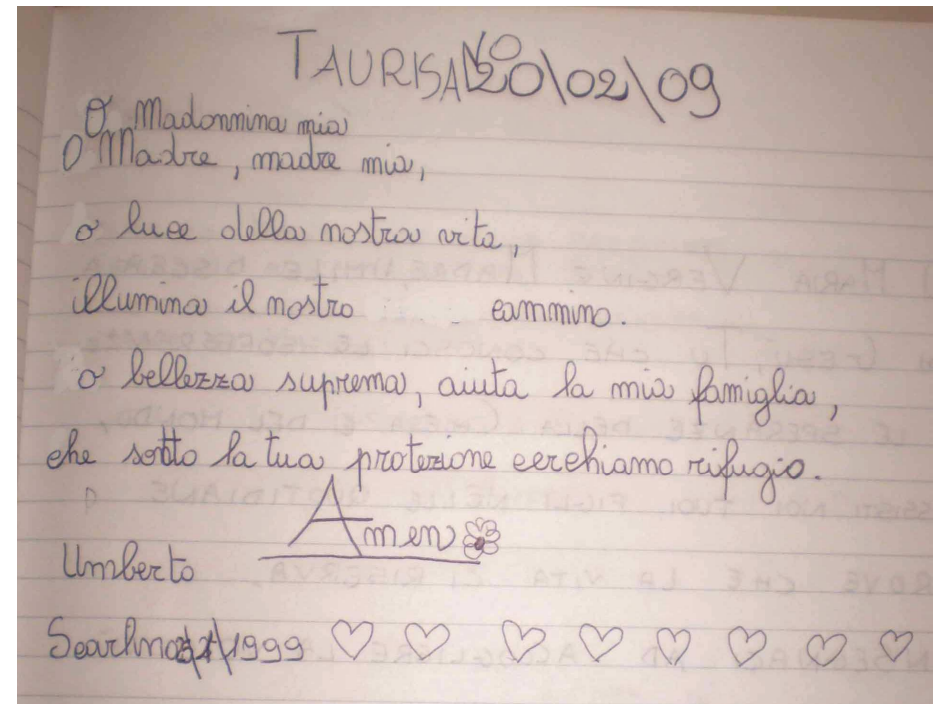 TAURISANO 20\02\09
O Madonnina mia
O Madre, madre mia,
o luce della nostra vita,
illumina il nostro cammino.
o bellezza suprema, aiuta la mia famiglia,
che sotto la tua protezione cerchiamo rifugio.
Amen
Umberto
1999